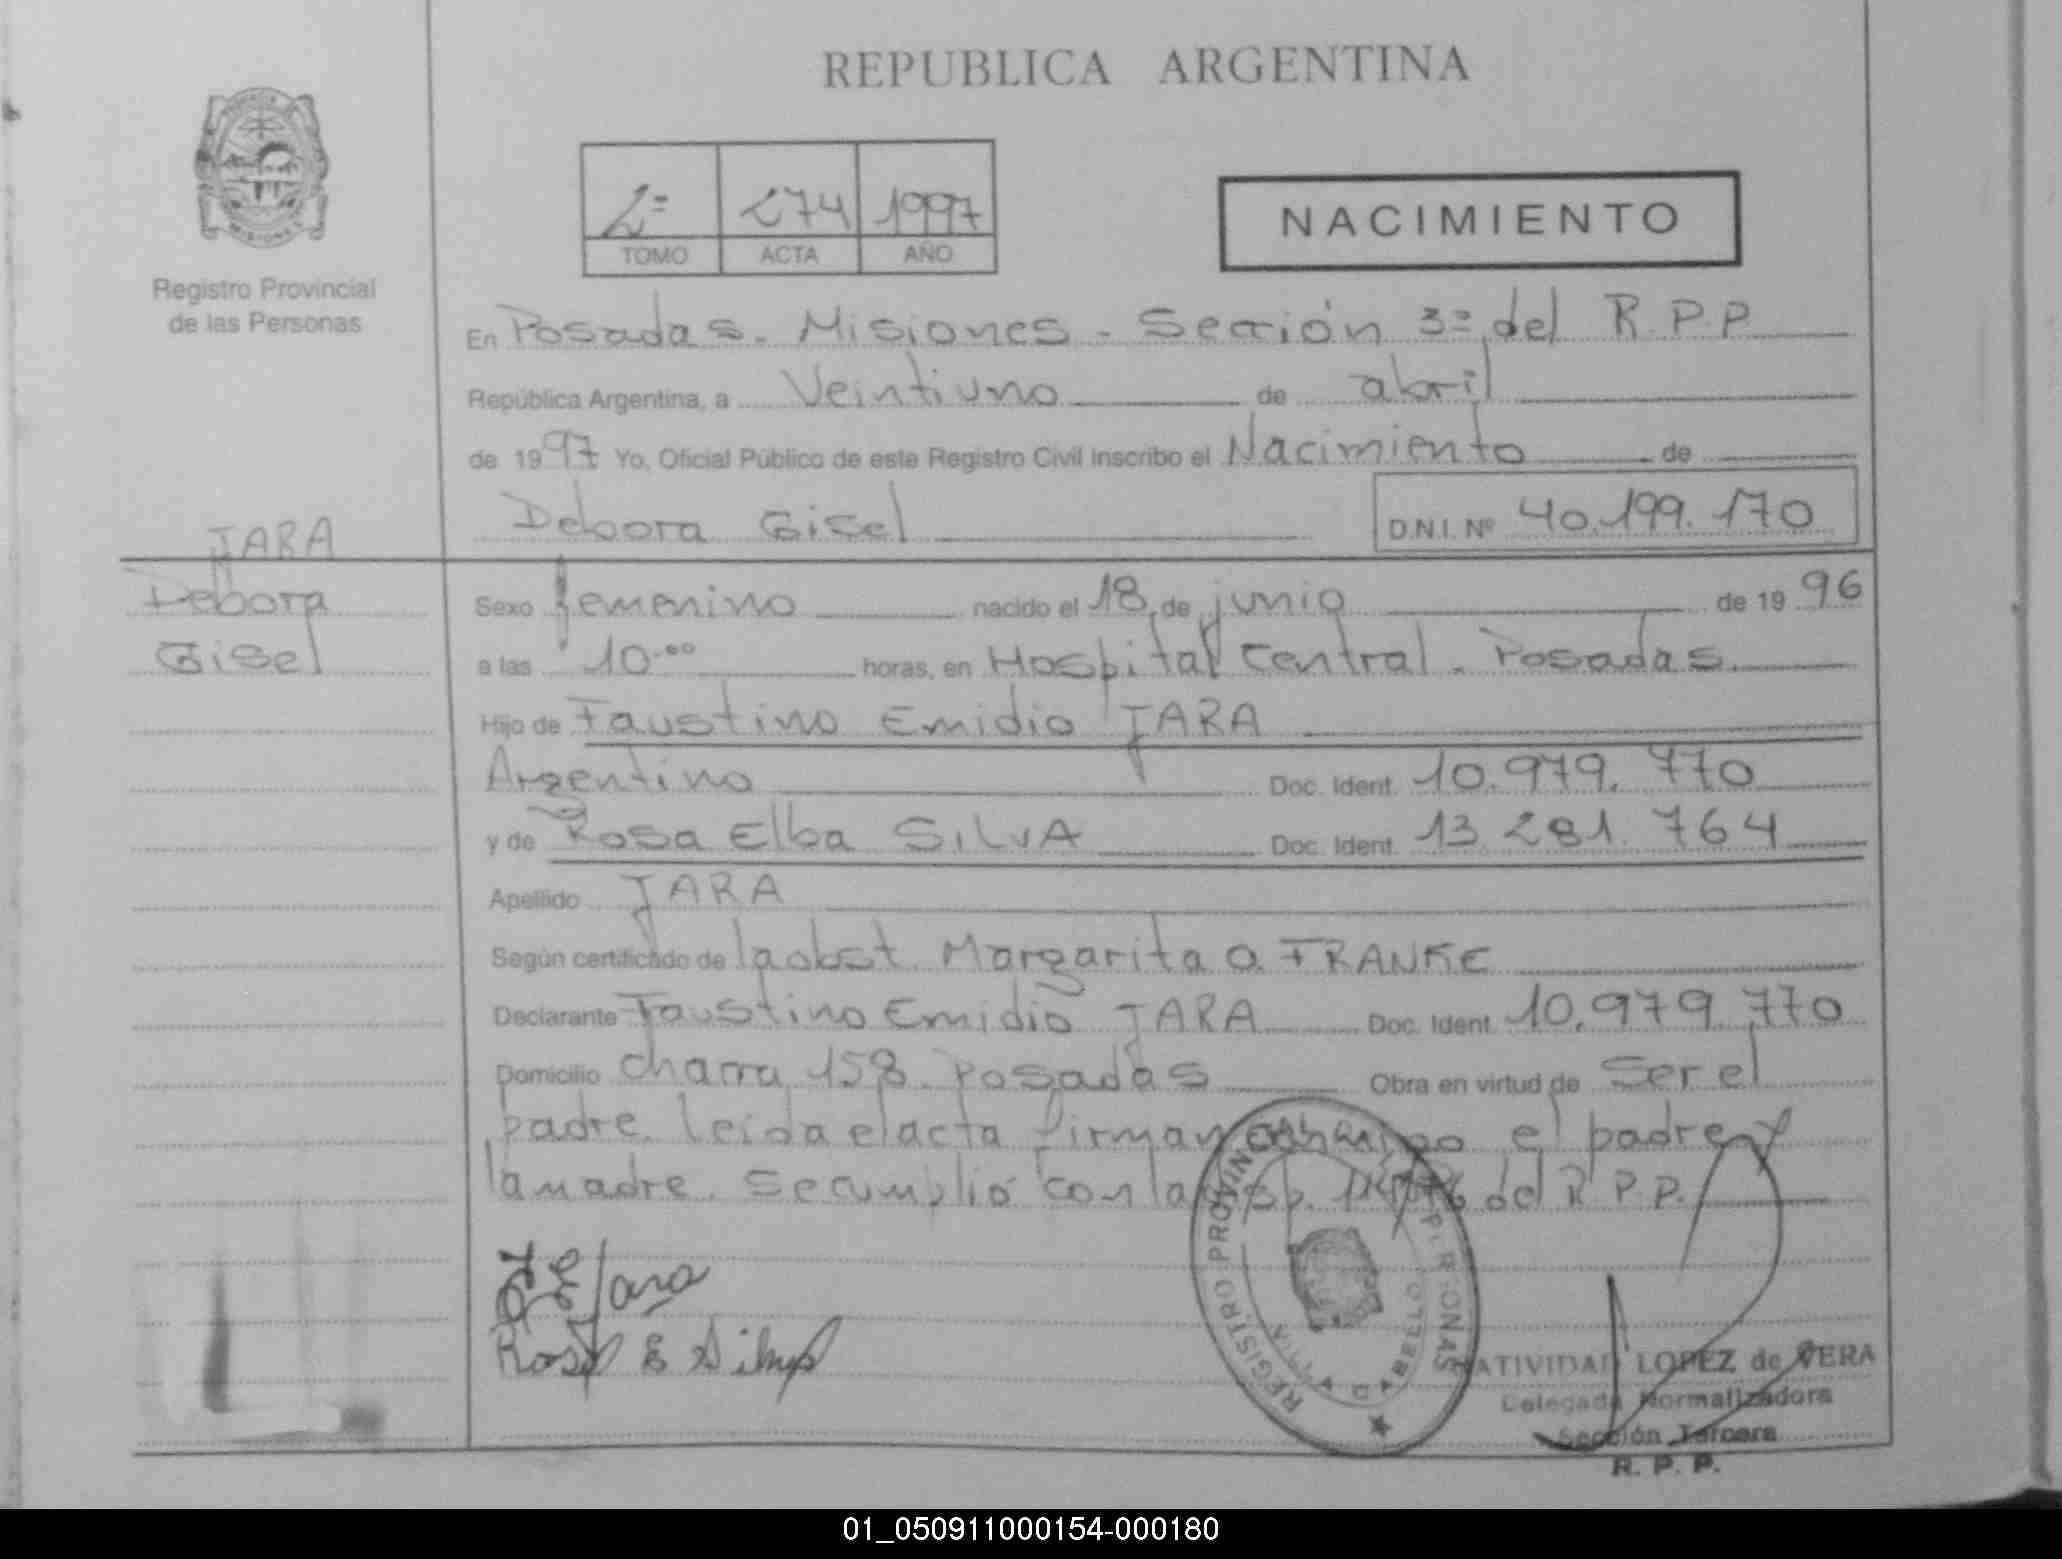 REPUBLICA ARGENTINA
PROVINCIA
MISIONES
Registro Provincial
de las Personas
2º 274 1997
TOMO ACTA AÑO
NACIMIENTO
En Posadas - Misiones - Sección 3º del R.P.P
República Argentina, a Veintiuno de abril
de 1997 Yo, Oficial Público de este Registro Civil inscribo el Nacimiento de
Debora Gisel D.N.I. Nº 40.199.170
JARA
Debora
Gisel
Sexo femenino nacido el 18 de junio de 1996
a las 10.00 horas, en Hospital Central - Posadas
Hijo de Faustino Emidio JARA
Argentino Doc. Ident. 10.979.770
y de Rosa Elba SILVA Doc. Ident. 13.281.764
Apellido JARA
Según certificado de la obst. Margarita O. FRANKE
Declarante Faustino Emidio JARA Doc. Ident. 10.979.770
Domicilio charra 158 Posadas Obra en virtud de ser el
padre. Leída el acta firman conmigo el padre y
la madre. Se cumplió con la del R.P.P.
F E Jara
Rosa E Silva
REGISTRO PROVINCIAL PERSONAS
CABELLO
NATIVIDAD LOPEZ de VERA
Delegada Normalizadora
Sección Tercera
R. P. P.
01_050911000154-000180